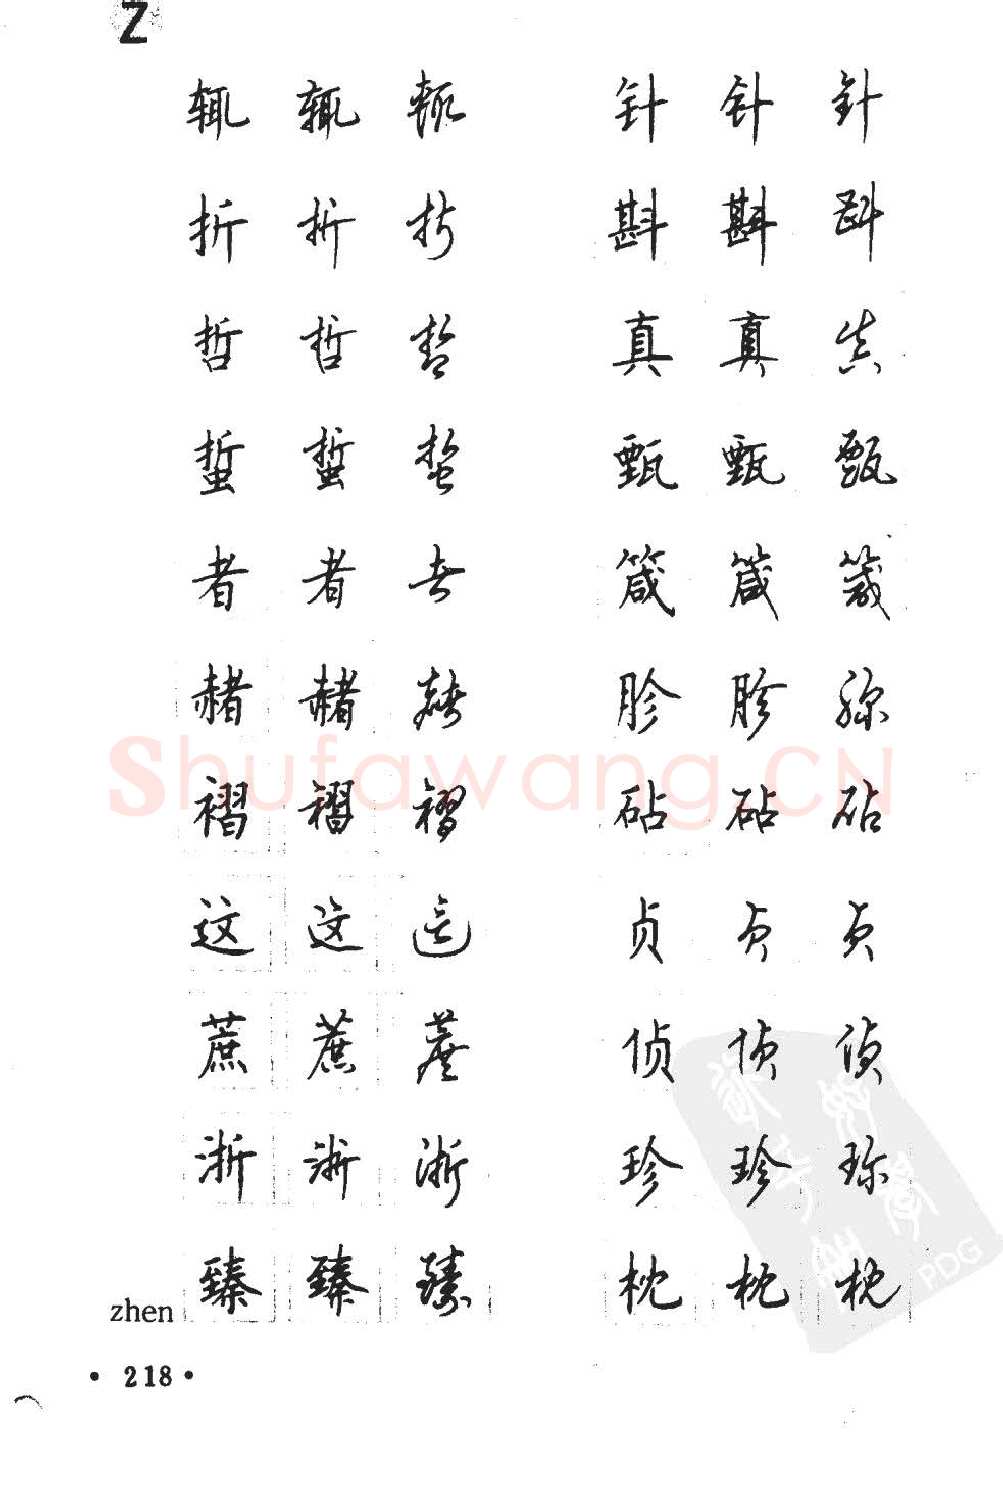 Z
辄 辄 辄 针 针 針
折 折 折 斟 斟 斟
哲 哲 哲 真 真 真
蜇 蜇 蜇 甄 甄 甄
者 者 者 箴 箴 箴
赭 赭 赭 胗 胗 胗
褶 褶 褶 砧 砧 砧
Shufawang.CN
这 这 这 贞 贞 贞
蔗 蔗 蔗 侦 侦 侦
浙 浙 浙 珍 珍 珍
zhen 臻 臻 臻 枕 枕 枕
PDG
• 218 •